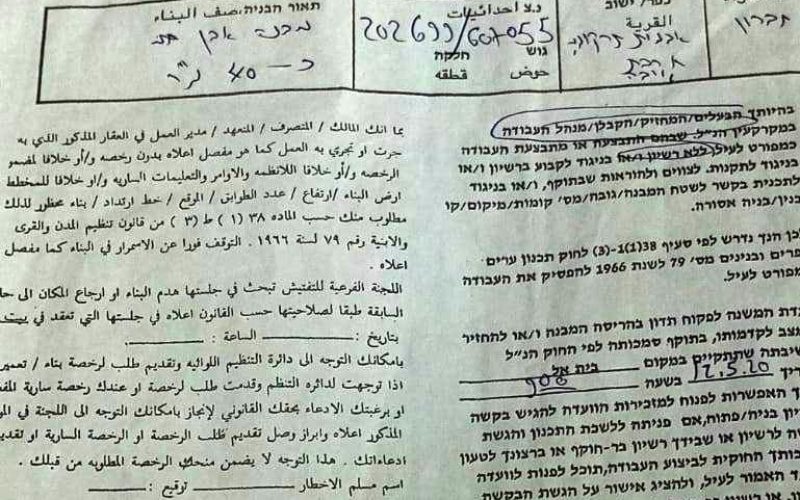 תאור הבניה, צף הבناء
מבנה אבן
כ-40 מ"ר
נ.צ احداثيات
202699/607055
גוש
חלקה
حوض
قطعه
ישוב
القرية
חברון
بما انك المالك / المتصرف / المتعهد / مدير العمل في العقار المذكور الذي به
جرت او تجري به العمل كما هو مفصل اعلاه بدون رخصه و/أو خلافا لمضمو
الرخصه و/أو خلافا للانظمه والاوامر والتعليمات الساريه و/او خلافا للمخطط
ارض البناء /ارتفاع / عدد الطوابق / الموقع / خط ارتداد / بناء محظور لذلك
مطلوب منك حسب الماده ٣٨ (١) ط (٣) من قانون تنظيم المدن والقرى
والابنية رقم ٧٩ لسنة ١٩٦٦. التوقف فورا عن الاسمرار في البناء كما مفصل
اعلاه .
اللجنة الفرعية للتفتيش تبحث في جلستها هدم البناء او ارجاع المكان الى حا
السابقة طبقا لصلاحيتها حسب القانون اعلاه في جلستها التي تعقد في بيت
بتاريخ : الساعة :
بامكانك التوجه الى دائرة التنظيم اللوائيه وتقديم طلب لرخصة بناء / تعمير
اذا توجهت لدائره التنظم وقدمت طلب لرخصة او عندك رخصة سارية المف
او برغبتك الادعاء بحقك القانوني لإنجاز بامكانك التوجه الى اللجنة في المو
المذكور اعلاه وابراز وصل تقديم طلب الرخصة او الرخصة السارية او تقديم
ادعاءاتك . هذا التوجه لا يضمن منحك الرخصة المطلوبه من قبلك .
اسم مسلم الاخطار توقيع :
בהיותך הבעלים/המחזיק/הקבלן/מנהל העבודה
במקרקעין הנ"ל, שבהם התבצעה או מתבצעת העבודה
כמפורט לעיל, ללא רשיון ו/או בניגוד לקבוע ברשיון ו/או
בניגוד לתקנות. לצווים ולהוראות שבתוקף, ו/או בניגוד
לתכנית בקשר לשטח המבנה/גובה/מס' קומות/מיקום/קו
בנין/בניה אסורה.
לכן הנך נדרש לפי סעיף 38(1)-(3) לחוק תכנון ערים
כפרים ובנינים מס' 79 לשנת 1966 להפסיק את העבודה
כמפורט לעיל.
ועדת המשנה לפקוח תדון בהריסת המבנה ו/או להחזיר
מצב לקדמותו, בתוקף סמכותה לפי החוק הנ"ל
בישיבתה שתתקיים במקום בית אל
בתאריך 12.5.20 בשעה 900
האפשרות לפנות למזכירות הוועדה להגיש בקשה
בניה/פתוח, אם פניתה ללשכת התכנון והגשת
לרשיון או שבידך רשיון בר-תוקף או ברצונך לטעון
החוקית לביצוע העבודה, תוכל לפנות לוועדה
האמור לעיל, ולהציג אישור על הגשת הבקשה